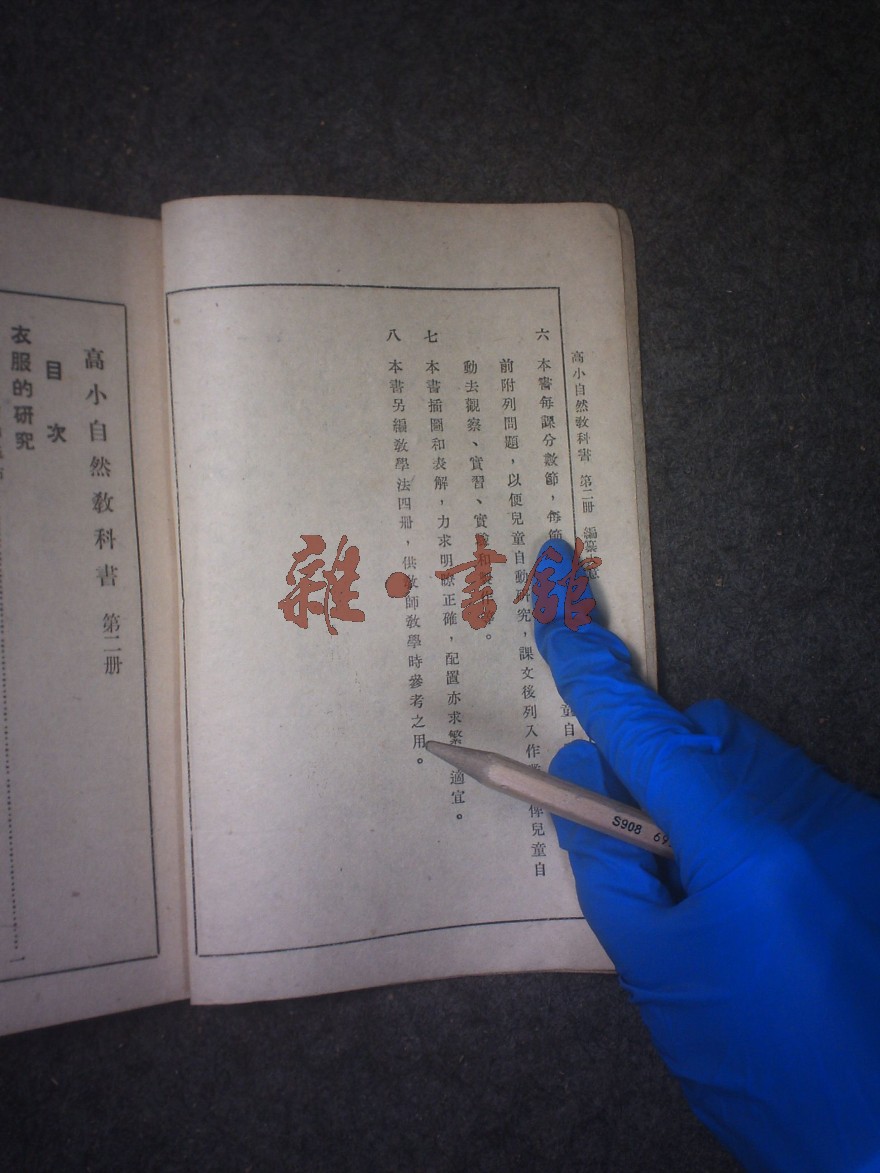 高小自然教科書 第二册 編
六 本書每課分數節，每節 童自
前附列問題，以便兒童自動研究，課文後列入作 俾兒童自
動去觀察、實習、實 和 。
七 本書插圖和表解，力求明瞭正確，配置亦求繁 適宜。
八 本書另編敎學法四册，供敎師敎學時參考之用。
高小自然敎科書 第二册
目次
衣服的研究
雜·書館
S908 69